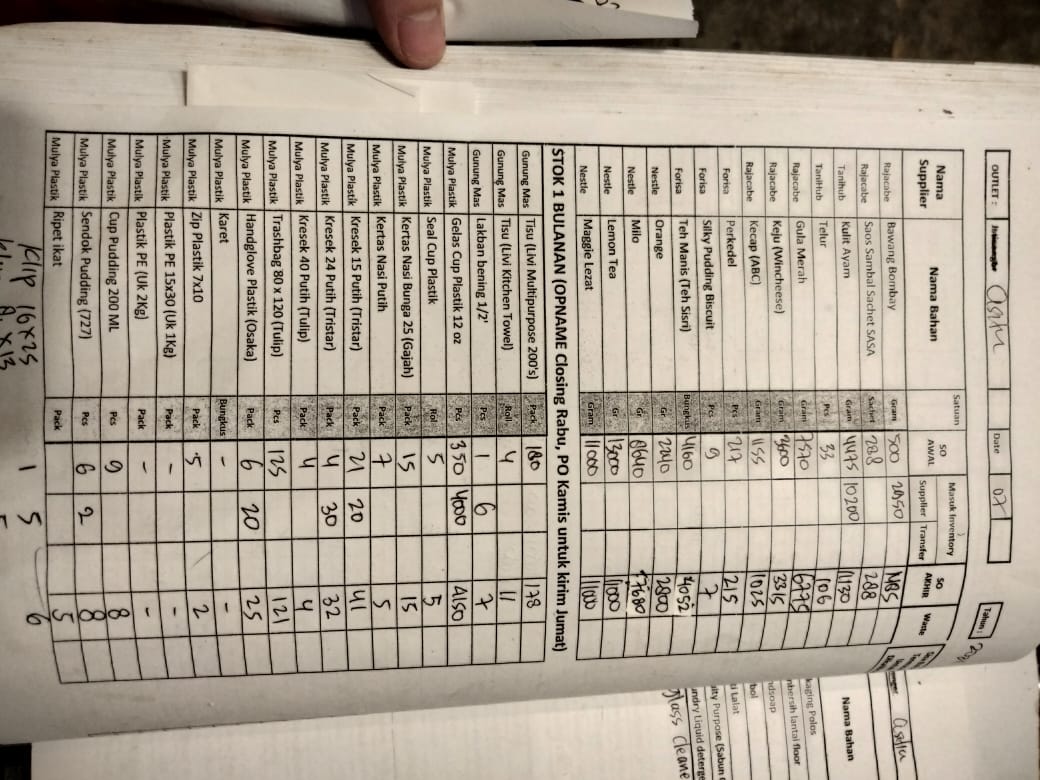 OUTLET : Asku
Date 07
Tahun :
Nama Supplier Nama Bahan Satuan SO AWAL Masuk Inventory Supplier Transfer SO AKHIR Waste
Rajacabe Bawang Bombay Gram 500 2950 1485
Rajacabe Saos Sambal Sachet SASA Sachet 288 288
Tanihub Kulit Ayam Gram 4475 10200 4130
TaniHub Telur Pcs 33 106
Rajacabe Gula Merah Gram 7570 6775
Rajacabe Keju (Wincheese) Gram 3600 3315
Rajacabe Kecap (ABC) Gram 1155 1025
Forisa Perkedel Pcs 217 215
Forisa Silky Pudding Biscuit Pcs 9 7
Forisa Teh Manis (Teh Sisri) Bungkus 4160 4052
Nestle Orange Gr 2240 2800
Nestle Milo Gr 8640 7680
Nestle Lemon Tea Gr 13000
Nestle Maggie Lezat Gram 11000 11100
STOK 1 BULAN (OPNAME Closing Rabu, PO Kamis untuk kirim Jumat)
Gunung Mas Tisu (Livi Multipurpose 200's) Pack 180 178
Gunung Mas Tisu (Livi Kitchen Towel) Roll 4 11
Gunung Mas Lakban bening 1/2' Pcs 1 6 7
Mulya Plastik Gelas Cup Plastik 12 oz Pcs 350 4000 4150
Mulya Plastik Seal Cup Plastik Rol 5 5
Mulya Plastik Kertas Nasi Bunga 25 (Gajah) Pack 15 15
Mulya Plastik Kertas Nasi Putih Pack 7 5
Mulya Plastik Kresek 15 Putih (Tristar) Pack 21 20 41
Mulya Plastik Kresek 24 Putih (Tristar) Pack 4 30 32
Mulya Plastik Kresek 40 Putih (Tulip) Pack 4 4
Mulya Plastik Trashbag 80 x 120 (Tulip) Pcs 125 121
Mulya Plastik Handglove Plastik (Osaka) Pack 6 20 25
Mulya Plastik Karet Bungkus - -
Mulya Plastik Zip Plastik 7x10 Pack 5 2
Mulya Plastik Plastik PE 15x30 (Uk 1Kg) Pack - -
Mulya Plastik Plastik PE (Uk 2Kg) Pack - -
Mulya Plastik Cup Pudding 200 ML Pcs 9 8
Mulya Plastik Sendok Pudding (727) Pcs 6 2 8
Mulya Plastik Ripet ikat Pack 5
Klip 16x25 1 5 6
Nama Bahan
kaging Polos
mbersih lantai floor
ndsoap
bol
ti Lalat
ity Purpose (Sabun
undry Liquid deterge
glass cleane